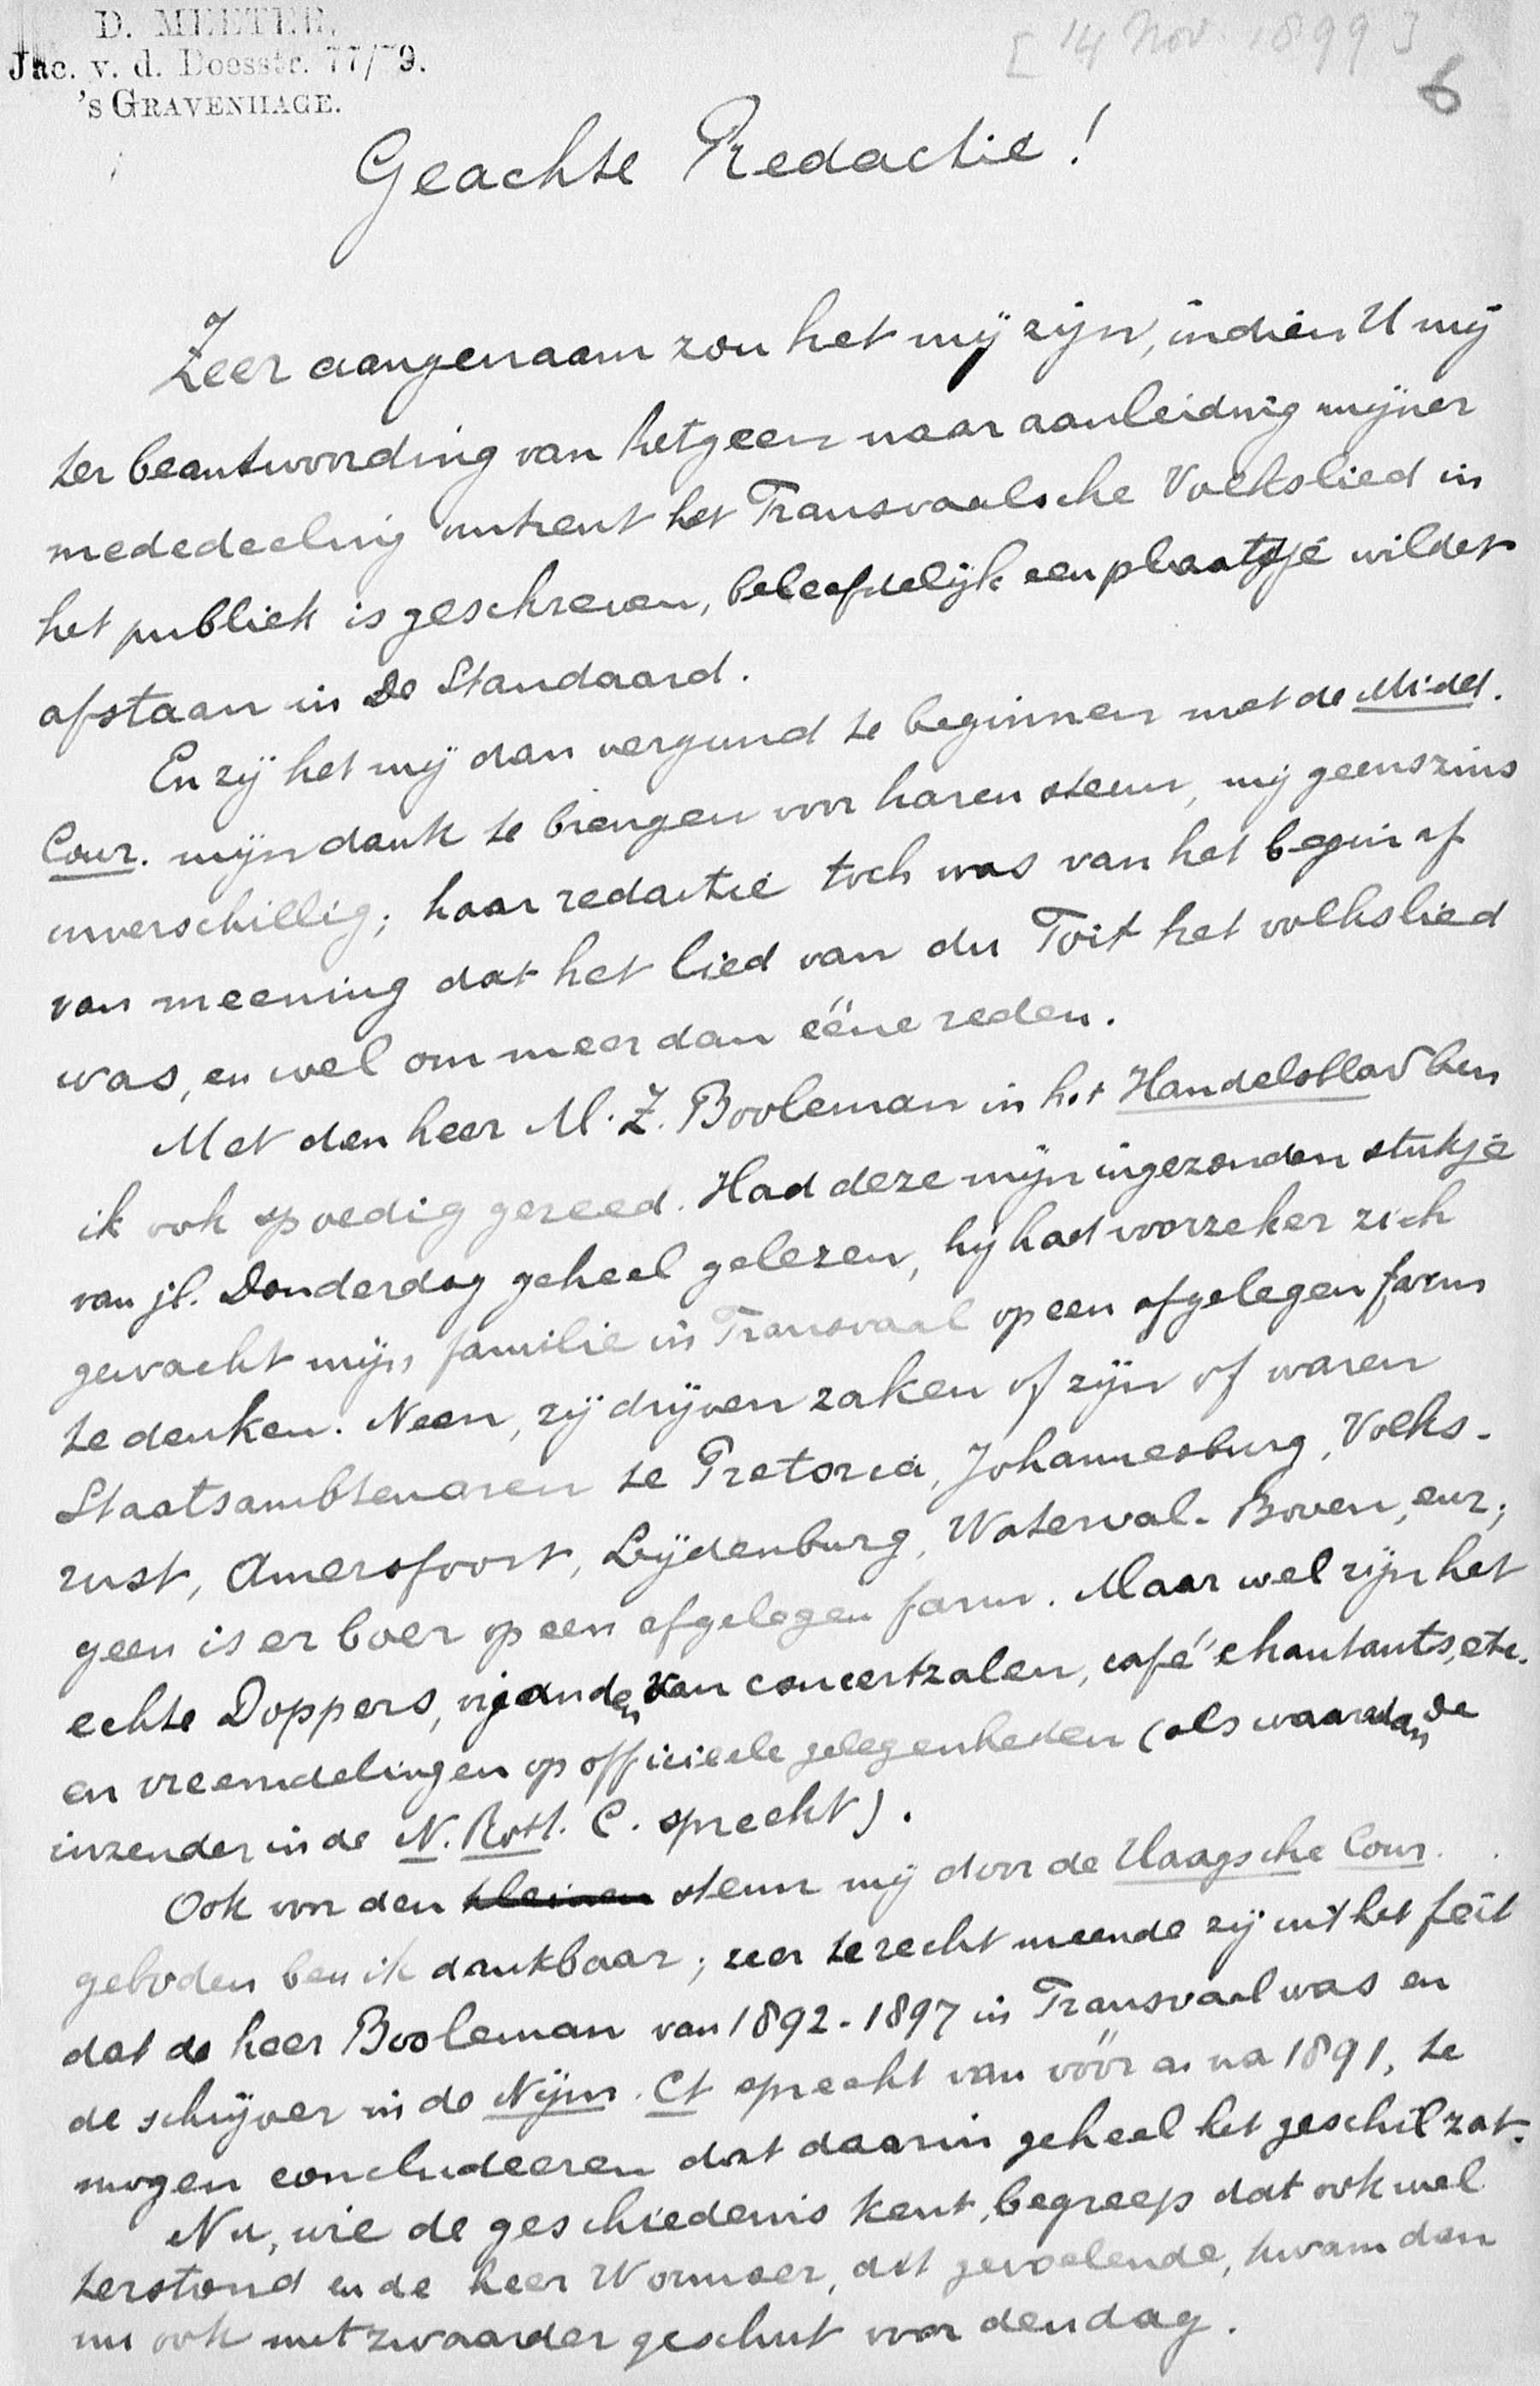 D. MEETER,
Jac. v. d. Doesstr. 77/79.
's GRAVENHAGE.
[14 Nov. 1899]
6
Geachte Redactie!
Zeer aangenaam zou het mij zijn, indien U mij
ter beantwoording van hetgeen naar aanleiding mijner
mededeeling omtrent het Transvaalsche Volkslied in
het publiek is geschreven, beleefdelijk een plaatsje wildet
afstaan in De Standaard.
En zij het mij dan vergund te beginnen met de Midd.
Cour. mijn dank te brengen voor haren steun, mij geenszins
onverschillig; haar redactie toch was van het begin af
van meening dat het lied van du Toit het volkslied
was, en wel om meer dan ééne reden.
Met den heer M. Z. Booleman in het Handelsblad ben
ik ook spoedig gereed. Had deze mijn ingezonden stukje
van jl. Donderdag geheel gelezen, hij had voorzeker zich
gewacht mijn familie in Transvaal op een afgelegen farm
te denken. Neen, zij drijven zaken of zijn of waren
Staatsambtenaren te Pretoria, Johannesburg, Volks-
rust, Amersfoort, Lijdenburg, Waterval-Boven, enz.;
geen is er boer op een afgelegen farm. Maar wel zijn het
echte Doppers, vijanden van concertzalen, café chantants, etc.
en vreemdelingen op officieele gelegenheden (als waarvan de
inzender in de N. Rott. C. spreekt).
Ook voor den kleinen steun mij door de Haagsche Cour.
geboden ben ik dankbaar; zeer terecht meende zij uit het feit
dat de heer Booleman van 1892-1897 in Transvaal was en
de schrijver in de Nijm. Ct spreekt van vóór en na 1891, te
mogen concludeeren dat daarin geheel het geschil zat.
Nu, wie de geschiedenis kent, begreep dat ook wel
terstond en de heer Wormser, dit gevoelende, kwam dan
nu ook met zwaarder geschut voor den dag.